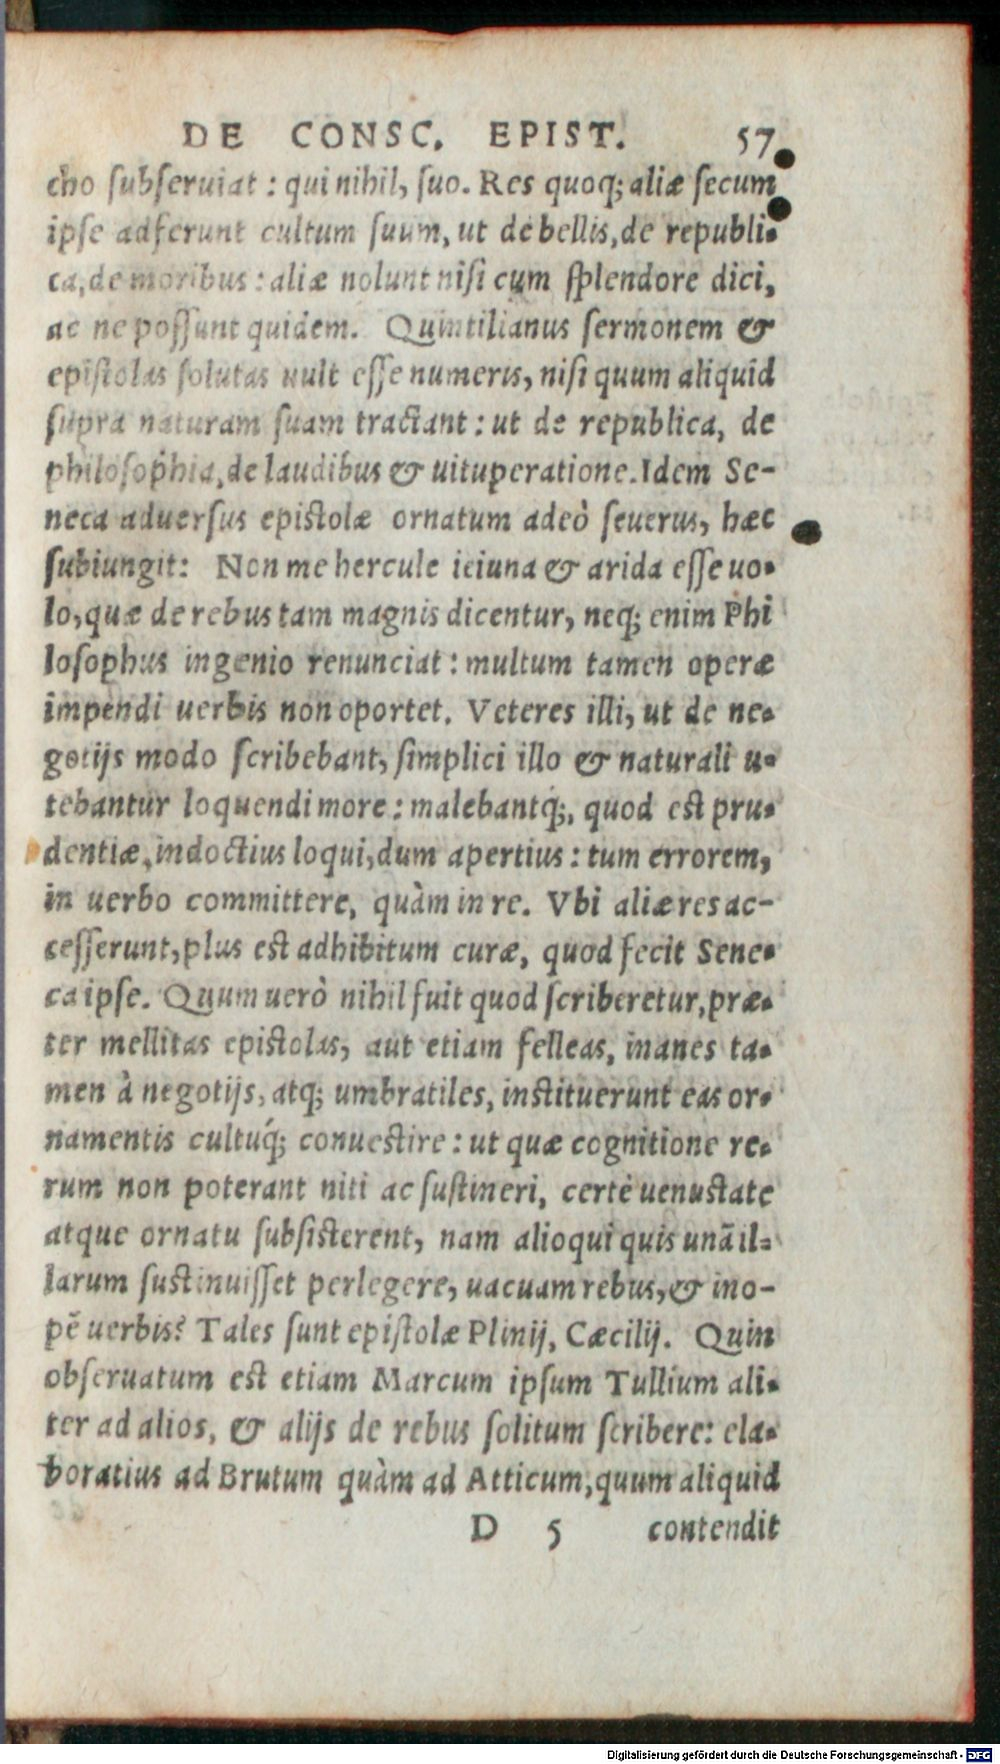 DE CONSC. EPIST. 57
cho subseruiat : qui nihil, suo. Res quoq; aliæ secum
ipse adferunt cultum suum, ut de bellis, de republi-
ca, de moribus : aliæ nolunt nisi cum splendore dici,
ac ne possunt quidem. Quintilianus sermonem &
epistolas solutas uult esse numeris, nisi quum aliquid
supra naturam suam tractant : ut de republica, de
philosophia, de laudibus & uituperatione. Idem Se-
neca aduersus epistolæ ornatum adeò seuerus, hæc
subiungit: Non me hercule ieiuna & arida esse uo-
lo, quæ de rebus tam magnis dicentur, neq; enim Phi
losophus ingenio renunciat : multum tamen operæ
impendi uerbis non oportet. Veteres illi, ut de ne-
gotijs modo scribebant, simplici illo & naturali u-
tebantur loquendi more : malebantq́;, quod est pru-
dentiæ, indoctius loqui, dum apertius : tum errorem,
in uerbo committere, quàm in re. Vbi aliæ res ac-
cesserunt, plus est adhibitum curæ, quod fecit Sene-
ca ipse. Quum uerò nihil fuit quod scriberetur, præ-
ter mellitas epistolas, aut etiam felleas, inanes ta-
men à negotijs, atq; umbratiles, instituerunt eas or-
namentis cultuq́; conuestire : ut quæ cognitione re-
rum non poterant niti ac sustineri, certè uenustate
atque ornatu subsisterent, nam alioqui quis unā il-
larum sustinuisset perlegere, uacuam rebus, & ino-
pē uerbis? Tales sunt epistolæ Plinij, Cæcilij. Quin
obseruatum est etiam Marcum ipsum Tullium ali-
ter ad alios, & alijs de rebus solitum scribere: ela-
boratius ad Brutum quàm ad Atticum, quum aliquid
D 5 contendit
Digitalisierung gefördert durch die Deutsche Forschungsgemeinschaft - DFG